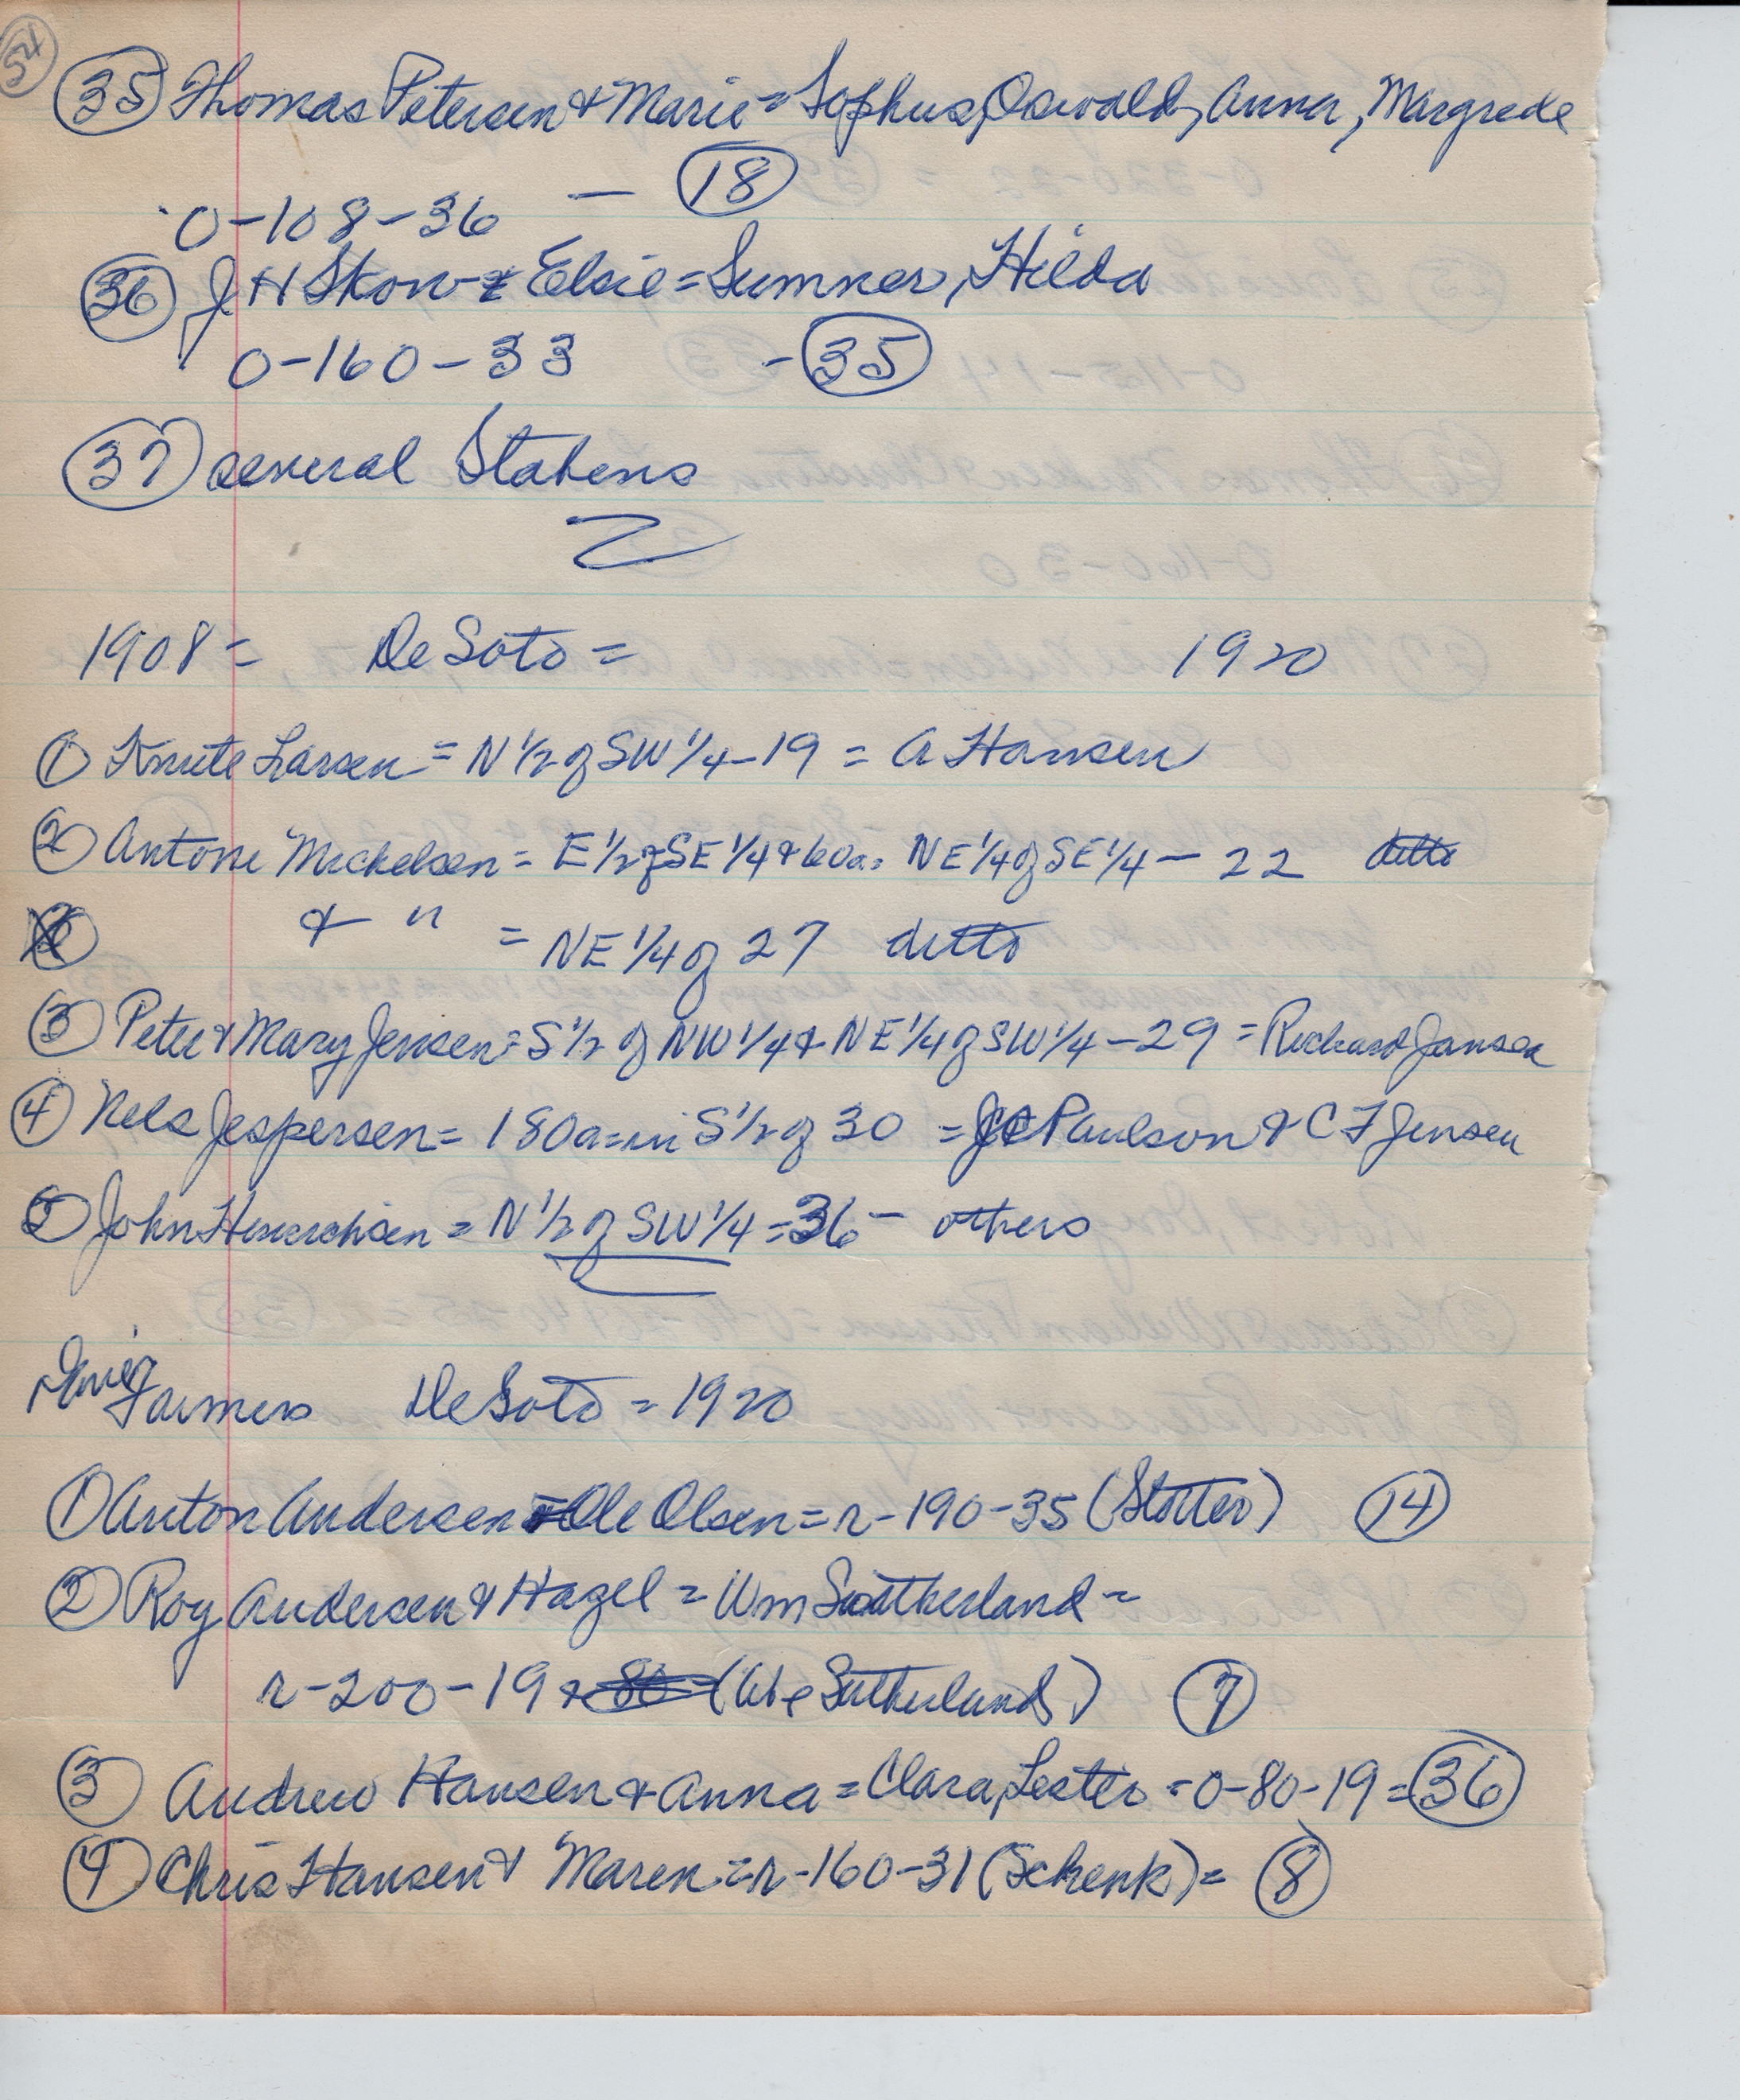 54
(35) Thomas Petersen & Marie = Sophus, Oswald, Anna, Margrede
0-108-36 — (18)
(36) J H Skow & Elsie = Sumner, Hilda
0-160-33 - (35)
(37) several Statens
1908 = De Soto = 1920
(1) Knute Larsen = N 1/2 of SW 1/4 - 19 = A Hansen
(2) Antone Mickelsen = E 1/2 of SE 1/4 & 60a = NE 1/4 of SE 1/4 — 22 ditto
& " = NE 1/4 of 27 ditto
(3) Peter & Mary Jensen = S 1/2 of NW 1/4 & NE 1/4 of SW 1/4 - 29 = Richard Jansen
(4) Nels Jespersen = 180a = in S 1/2 of 30 = Paulson & C F Jensen
(5) John Henrichsen = N 1/2 of SW 1/4 = 36 - others
Farmers De Soto = 1920
(1) Anton Andersen = Ole Olsen = r-190-35 (Stotter) (14)
(2) Roy Andersen & Hazel = Wm Sutherland =
r-200-19 & 80 = (Abe Sutherland) (7)
(3) Andrew Hansen & Anna = Clara, Lester = 0-80-19 = (36)
(4) Chris Hansen & Maren = r-160-31 (Schenk) = (8)